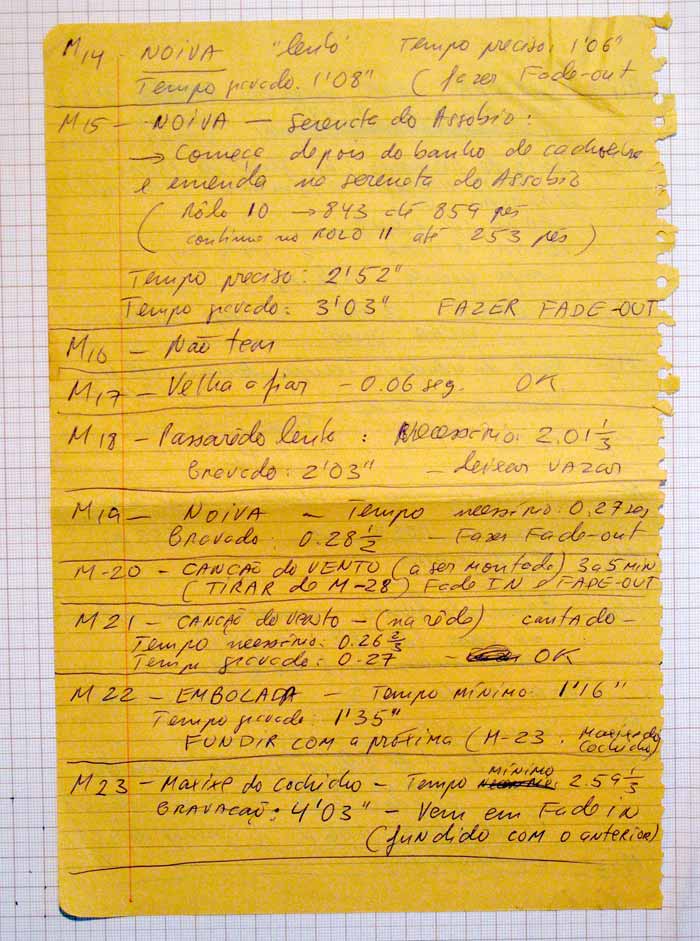 M14 - NOIVA "lento" Tempo preciso: 1'06"
Tempo gravado: 1'08" (fazer Fade-out
M15 - NOIVA - Serenata do Assobio:
→ Começa depois do banho de cachoeira
e emenda na serenata do Assobio
(Rôlo 10 → 843 até 859 pés
continua no ROLO 11 até 253 pés)
Tempo preciso: 2'52"
Tempo gravado: 3'03" FAZER FADE-OUT
M16 - Não tem
M17 - Velha a fiar - 0.06 seg. OK
M18 - Passarêdo lento: Necessário: 2.01 1/3
Gravado: 2'03" - deixar vazar
M19 - NOIVA - Tempo necessário: 0.27 seg
Gravado: 0.28 1/2 - Fazer Fade-out
M-20 - CANÇÃO do VENTO (a ser montada) 3 a 5 min
(TIRAR de M-28) Fade IN e FADE-OUT
M21 - CANÇÃO do VENTO - (na rêde) cantado -
Tempo necessário: 0.26 2/3
Tempo gravado: 0.27 - OK
M22 - EMBOLADA - Tempo mínimo: 1'16"
Tempo gravado: 1'35"
FUNDIR COM a próxima (M-23. Maxixe do Cochicho)
M23 - Maxixe do Cochicho - Tempo MÍNIMO: 2.59 1/3
GRAVAÇÃO: 4'03" - Vem em Fade in
(fundido com o anterior)